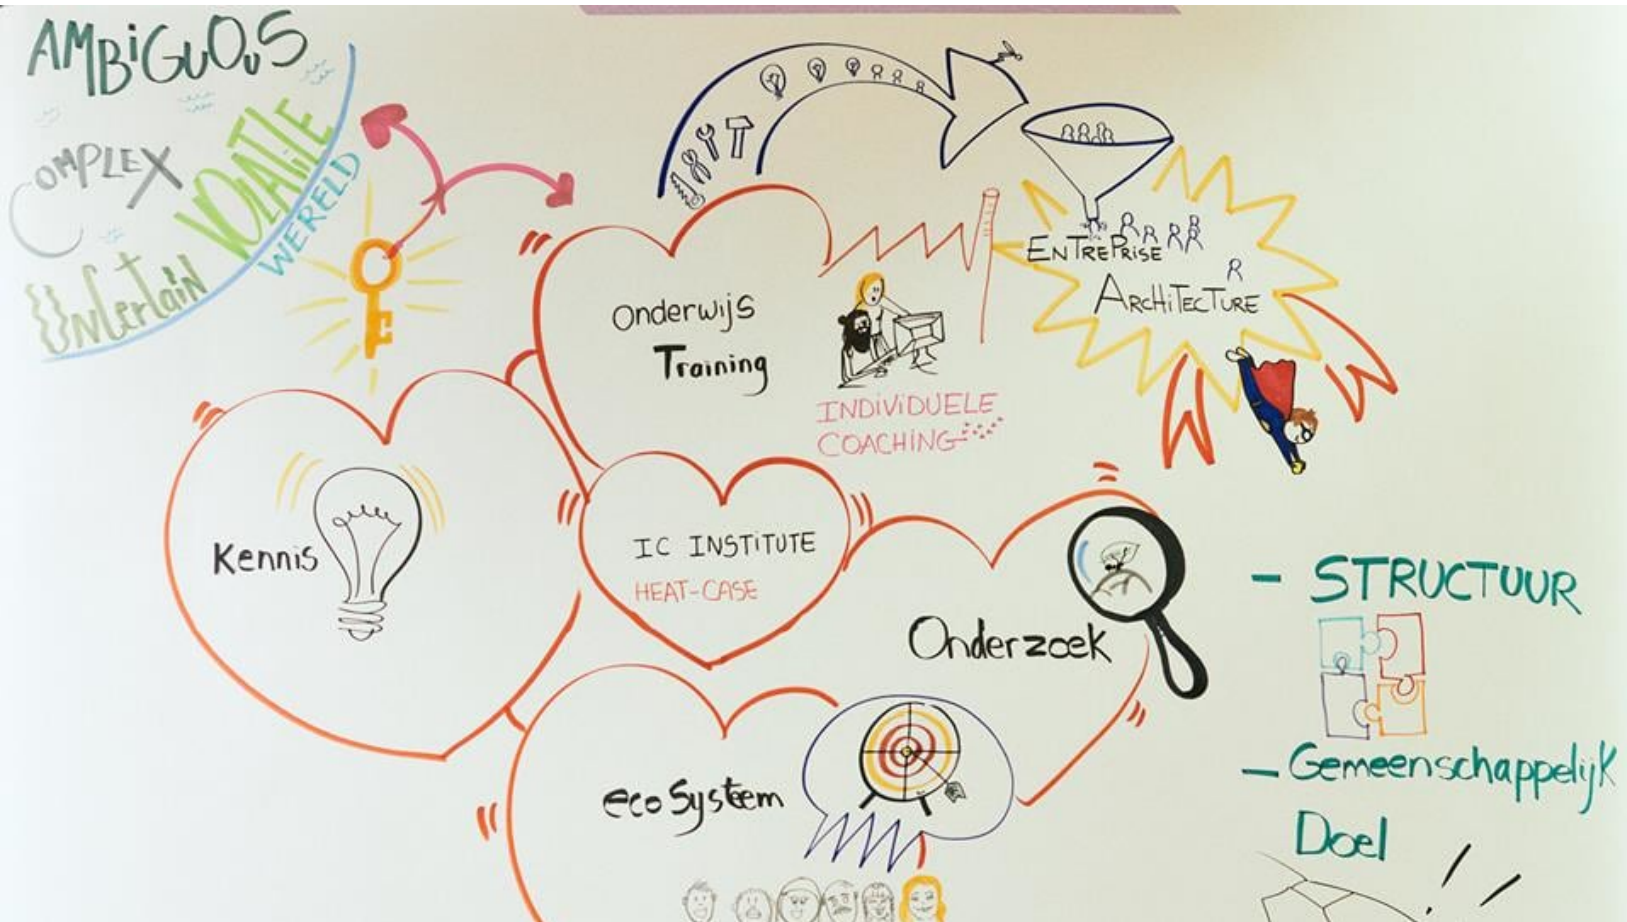 AMBiGuOuS
COMPLEX
VOlATiLE
UNCertaiN
WERELD
Onderwijs
Training
INDiViDUELE
COACHiNG
ENTREPRiSE
ARCHiTECTURE
Kennis
IC INSTiTUTE
HEAT-CASE
Onderzoek
eco Systeem
- STRUCTUUR
- Gemeenschappelijk
Doel